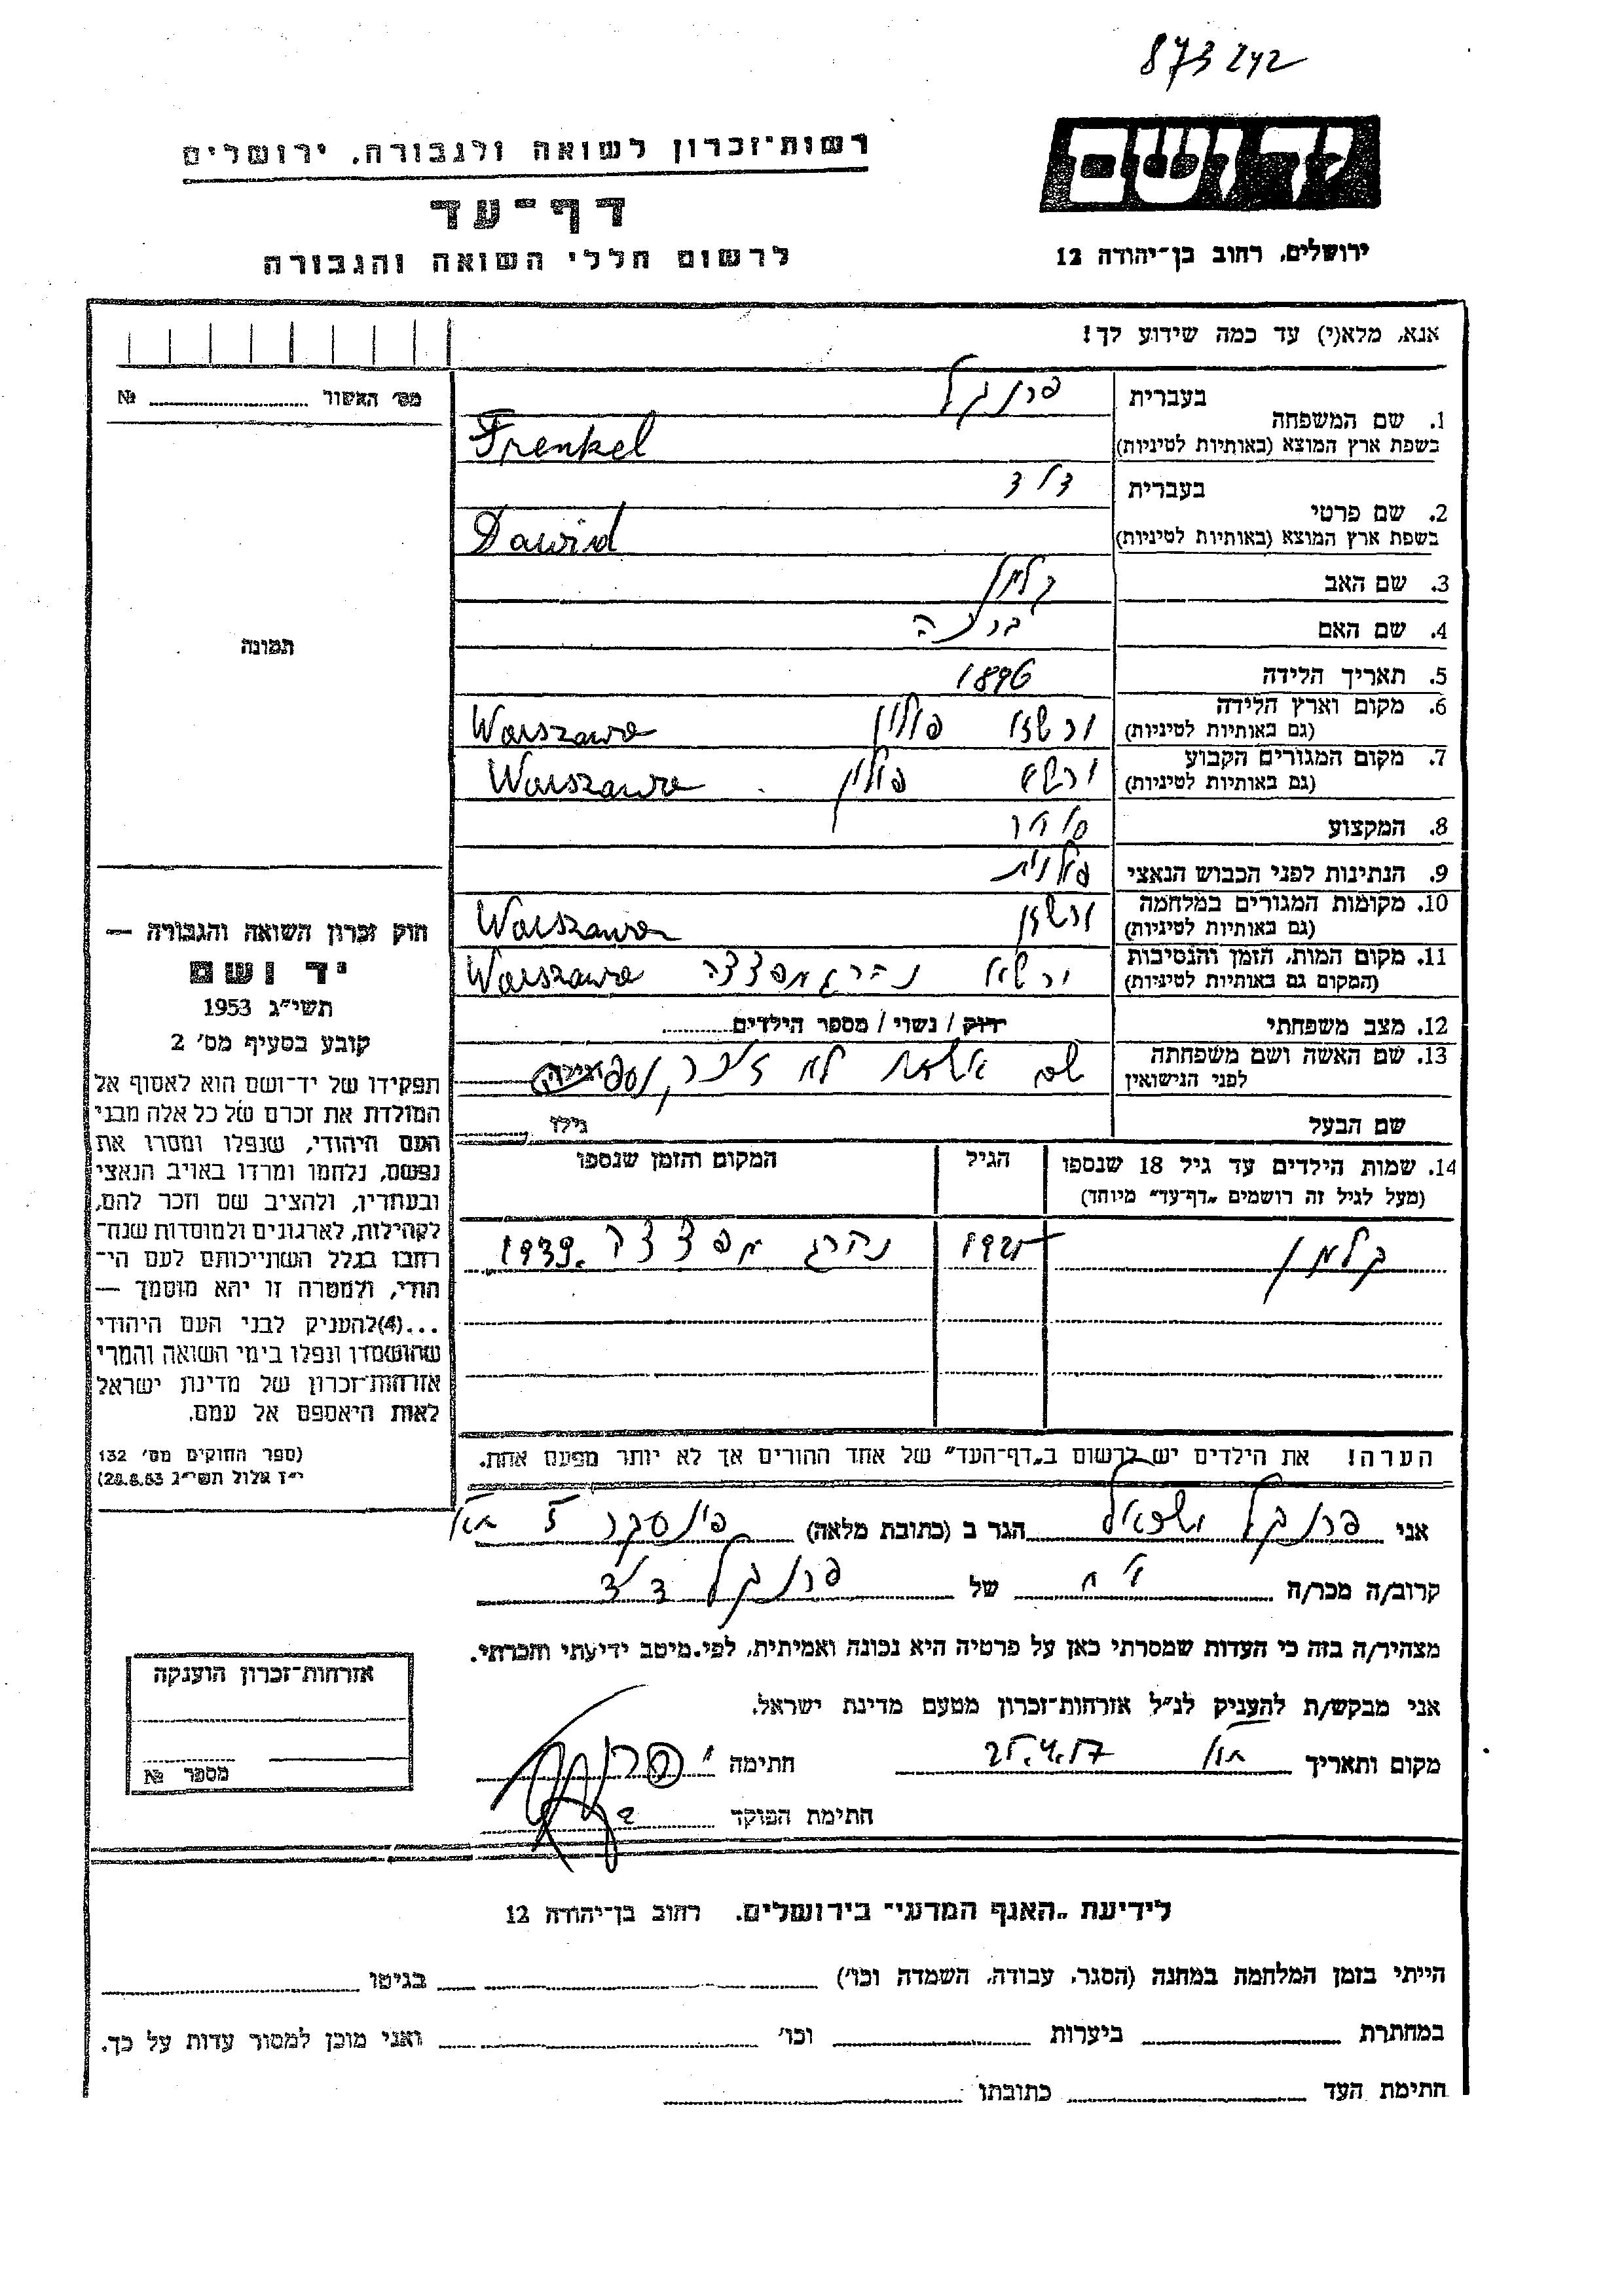 873242
יד ושם
רשות־זכרון לשואה ולגבורה, ירושלים
דף־עד
לרשום חללי השואה והגבורה
ירושלים, רחוב בן־יהודה 12
אנא, מלא(י) עד כמה שידוע לך!
מס׳ האשור № 
1. שם המשפחה
בעברית פרנקל
בשפת ארץ המוצא (באותיות לטיניות) Frenkel
2. שם פרטי
בעברית דוד
בשפת ארץ המוצא (באותיות לטיניות) Dawid
3. שם האב קלמן
4. שם האם
5. תאריך הלידה 1896
6. מקום וארץ הלידה
(גם באותיות לטיניות) ורשא פולין Warszawa
7. מקום המגורים הקבוע
(גם באותיות לטיניות) ורשא פולין Warszawa
8. המקצוע סוחר
9. הנתינות לפני הכבוש הנאצי פולנית
10. מקומות המגורים במלחמה
(גם באותיות לטיניות) ורשא Warszawa
11. מקום המות, הזמן והנסיבות
(המקום גם באותיות לטיניות) ורשא נהרג מפצצה Warszawa
12. מצב משפחתי רווק / נשוי / מספר הילדים
13. שם האשה ושם משפחתה
לפני הנישואין שם אשתו לא זוכר,
שם הבעל גילו
14. שמות הילדים עד גיל 18 שנספו
(מעל לגיל זה רושמים „דף־עד״ מיוחד)
הגיל
המקום והזמן שנספו
קלמן 1925 נהרג מפצצה 1939.
הערה! את הילדים יש לרשום ב„דף־העד״ של אחד ההורים אך לא יותר מפעם אחת.
תמונה
חוק זכרון השואה והגבורה —
יד ושם
תשי״ג 1953
קובע בסעיף מס׳ 2
תפקידו של יד־ושם הוא לאסוף אל
המולדת את זכרם של כל אלה מבני
העם היהודי, שנפלו ומסרו את
נפשם, נלחמו ומרדו באויב הנאצי
ובעוזריו, ולהציב שם וזכר להם,
לקהילות, לארגונים ולמוסדות שנח־
רבו בגלל השתייכותם לעם הי־
הודי, ולמטרה זו יהא מוסמך —
...(4)להעניק לבני העם היהודי
שהושמדו ונפלו בימי השואה והמרי
אזרחות־זכרון של מדינת ישראל
לאות היאספם אל עמם.
(ספר החוקים מס׳ 132
י״ז אלול תשי״ג 28.8.53)
אני פרנקל הגר ב (כתובת מלאה) פינסקר 5
קרוב/ה מכר/ה אח של פרנקל דוד
מצהיר/ה בזה כי העדות שמסרתי כאן על פרטיה היא נכונה ואמיתית, לפי מיטב ידיעתי והכרתי.
אני מבקש/ת להעניק לנ״ל אזרחות־זכרון מטעם מדינת ישראל.
מקום ותאריך 25.4.57 חתימה
חתימת הפוקד
אזרחות־זכרון הוענקה
מספר №
לידיעת „האגף המדעי״ בירושלים, רחוב בן־יהודה 12
הייתי בזמן המלחמה במחנה (הסגר, עבודה, השמדה וכו׳) בגיטו
במחתרת ביערות וכו׳ ואני מוכן למסור עדות על כך.
חתימת העד כתובתו